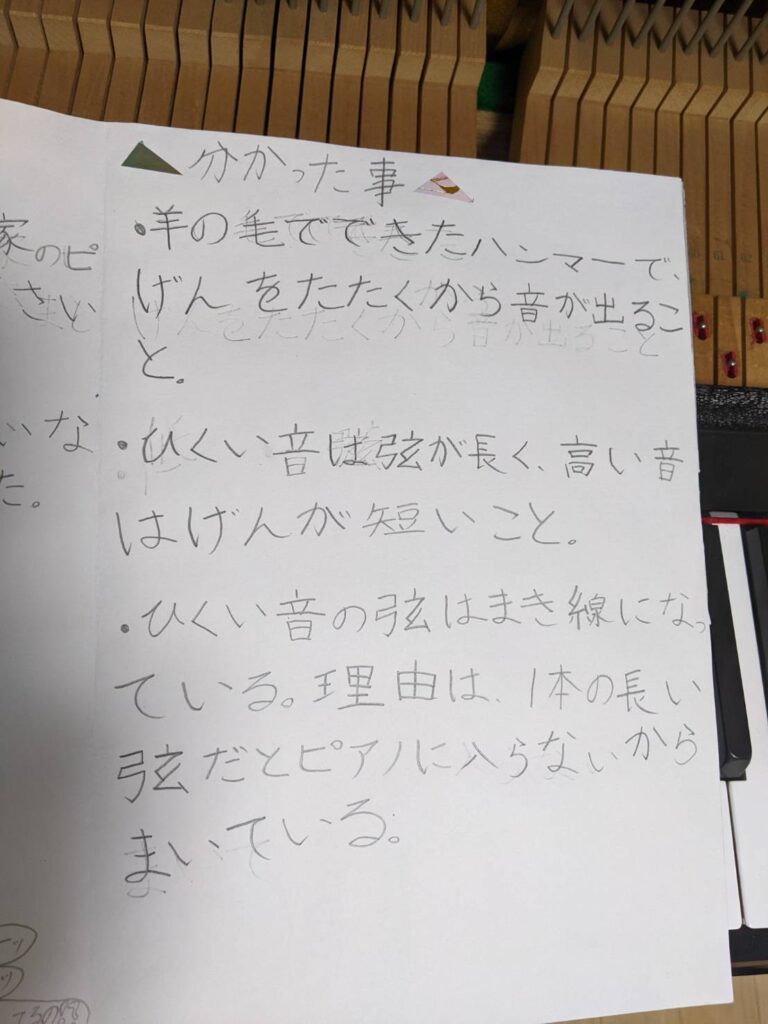 分かった事
・羊の毛でできたハンマーで、
げんをたたくから音が出るこ
と。
・ひくい音は弦が長く、高い音
はげんが短いこと。
・ひくい音の弦はまき線になっ
ている。理由は、1本の長い
弦だとピアノに入らないから
まいている。
家のピ
さい
いな
た。